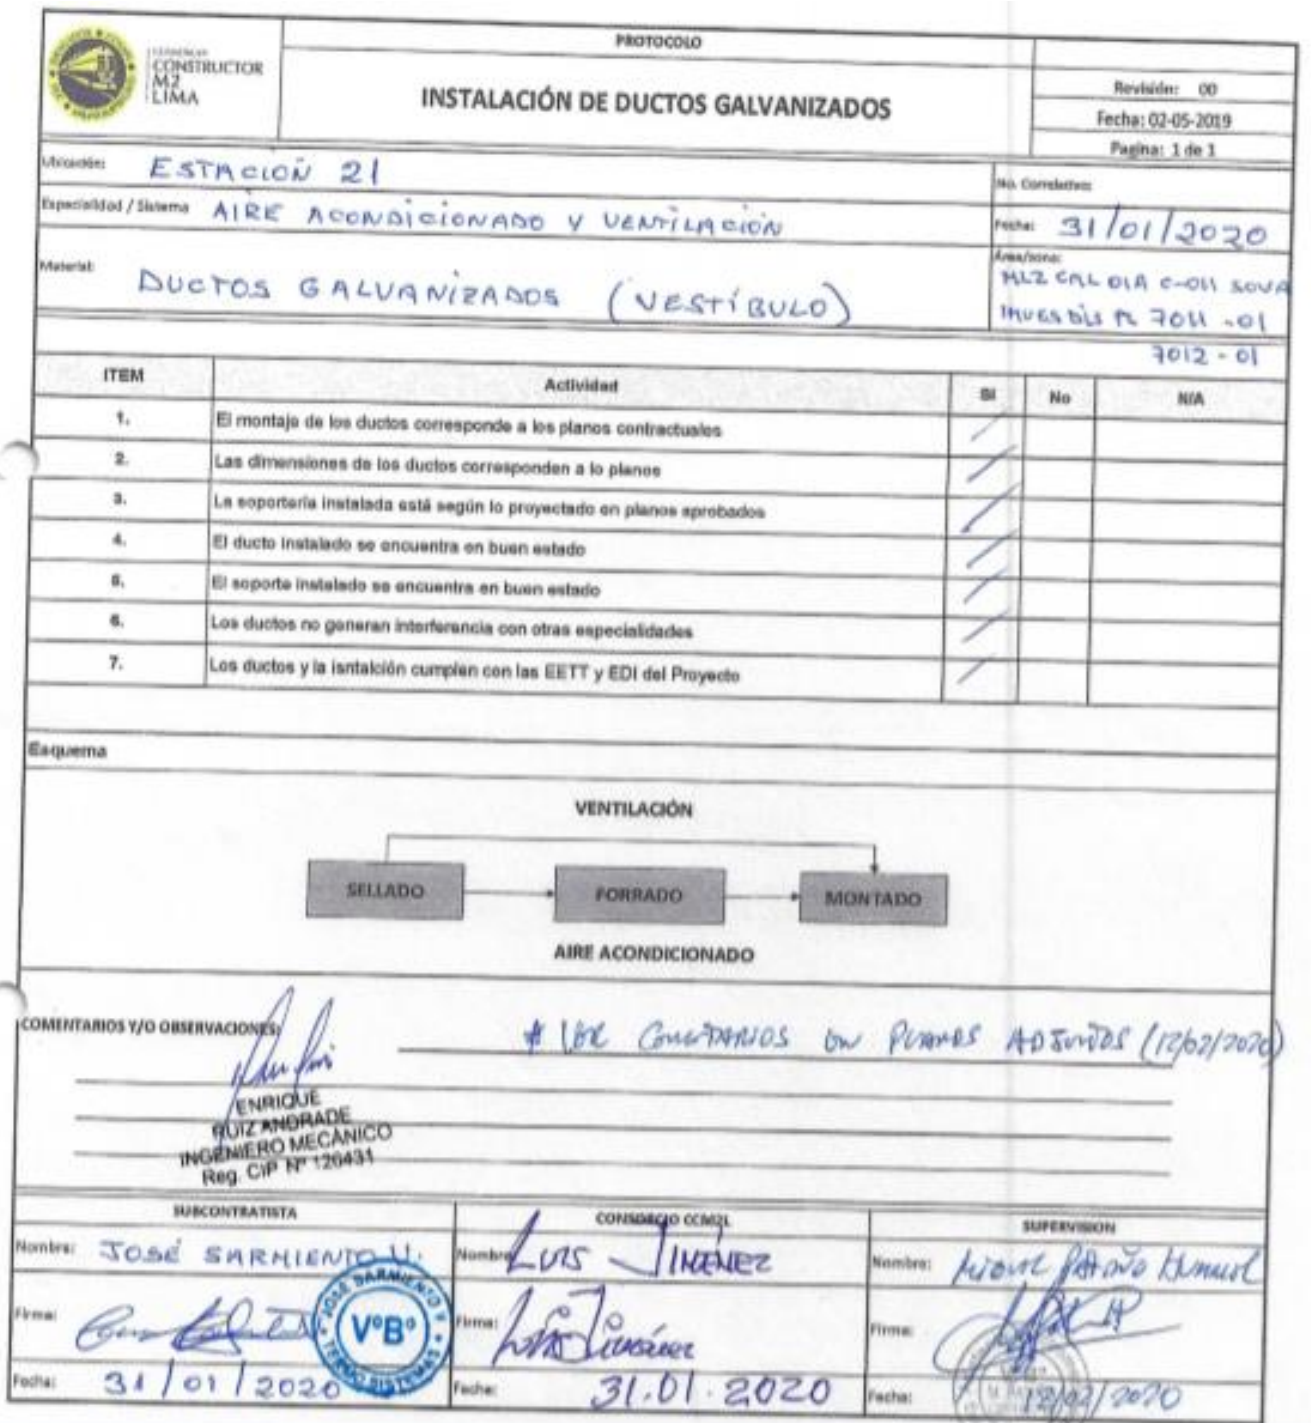 CONSTRUCTOR
M2
LIMA
PROTOCOLO
INSTALACIÓN DE DUCTOS GALVANIZADOS
Revisión: 00
Fecha: 02-05-2019
Pagina: 1 de 1
Ubicación: ESTACIÓN 21
No. Correlativo:
Especialidad / Sistema AIRE ACONDICIONADO Y VENTILACIÓN
Fecha: 31/01/2020
Material: DUCTOS GALVANIZADOS (VESTÍBULO)
Área/zona:
7011 -01
7012 - 01
ITEM Actividad SI No N/A
1. El montaje de los ductos corresponde a los planos contractuales
2. Las dimensiones de los ductos corresponden a lo planos
3. La soportería instalada está según lo proyectado en planos aprobados
4. El ducto instalado se encuentra en buen estado
5. El soporte instalado se encuentra en buen estado
6. Los ductos no generan interferencia con otras especialidades
7. Los ductos y la isntalción cumplen con las EETT y EDI del Proyecto
Esquema
VENTILACIÓN
SELLADO FORRADO MONTADO
AIRE ACONDICIONADO
COMENTARIOS Y/O OBSERVACIONES:
PLANOS ADJUNTOS (12/02/2020)
ENRIQUE
RUIZ ANDRADE
INGENIERO MECÁNICO
Reg. CIP Nº 126431
SUBCONTRATISTA CONSORCIO CCM2L SUPERVISION
Nombre: JOSÉ SARMIENTO U. Nombre: LUIS JIMÉNEZ Nombre:
JOSE SARMIENTO
VºBº
Firma: Firma: Luis Jiménez Firma:
Fecha: 31/01/2020 Fecha: 31.01.2020 Fecha: 12/02/2020